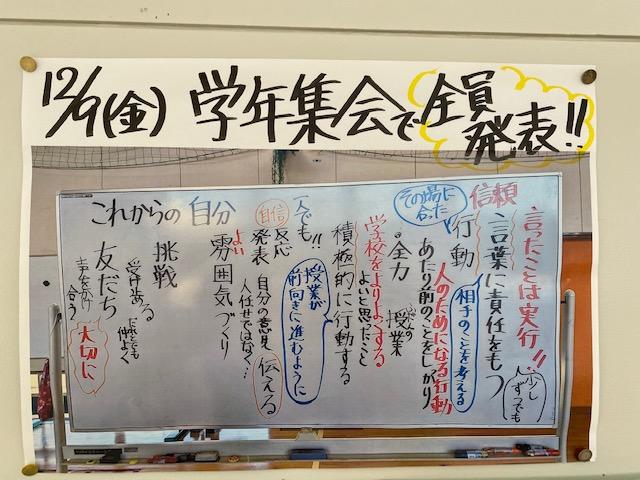 12/9(金) 学年集会で全員発表!!
これからの自分
言ったことは実行!!
少し
1人ずつでも
信頼
言葉に責任をもつ
相手のことを考える
その場に合った
行動
人のためになる行動
あたり前のことをしっかり
全力
ふだんの
授業
学校をよりよくする
よいと思ったこと
積極的に行動する
1人でも!!
授業が
前向きに進むように
自信
反応
発表 自分の意見 伝える
人任せではなく…
よい
雰囲気づくり
挑戦
受けとめる
だれとでも
仲よく
友だち 大切に
声をかけ
合う